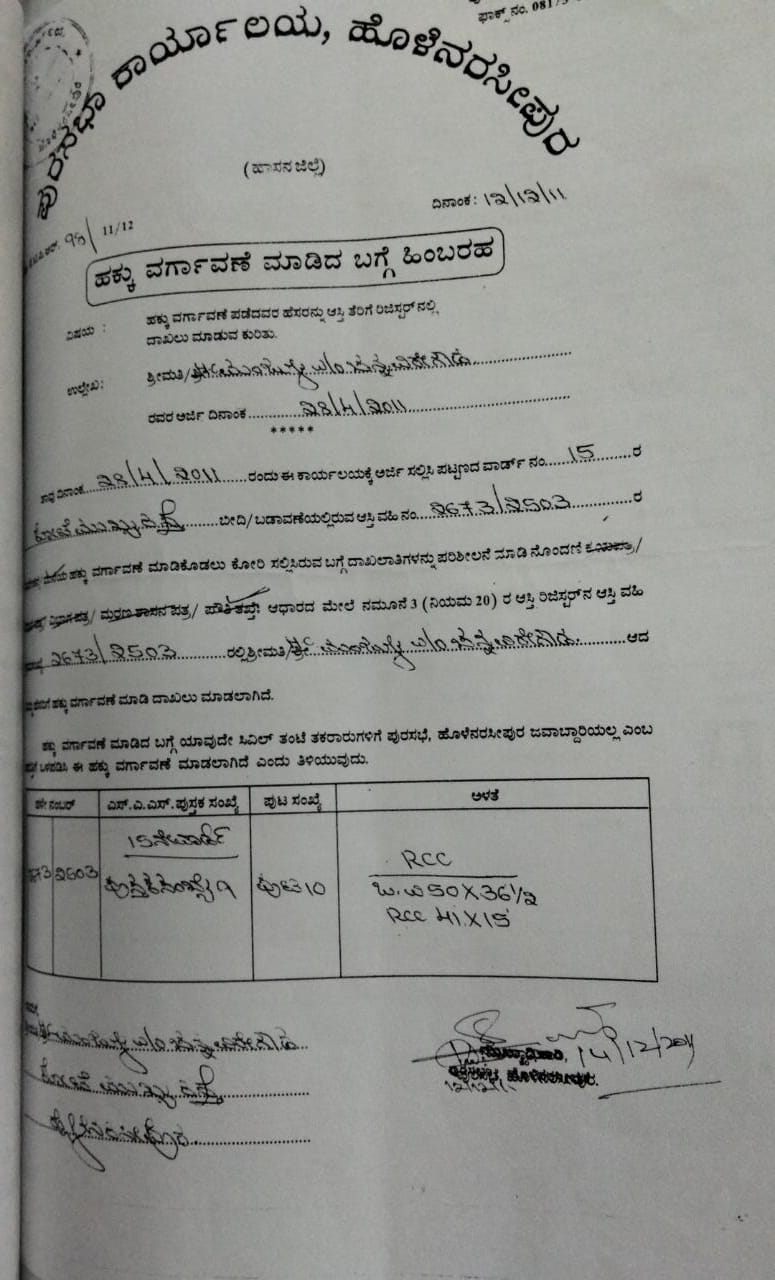 ಫ್ಯಾಕ್ಸ್ ನಂ. 08175
ಪುರಸಭಾ ಕಾರ್ಯಾಲಯ, ಹೊಳೆನರಸೀಪುರ
(ಹಾಸನ ಜಿಲ್ಲೆ)
ದಿನಾಂಕ: 12/12/11
11/12
ಹಕ್ಕು ವರ್ಗಾವಣೆ ಮಾಡಿದ ಬಗ್ಗೆ ಹಿಂಬರಹ
ವಿಷಯ : ಹಕ್ಕು ವರ್ಗಾವಣೆ ಪಡೆದವರ ಹೆಸರನ್ನು ಆಸ್ತಿ ತೆರಿಗೆ ರಿಜಿಸ್ಟರ್‌ನಲ್ಲಿ
ದಾಖಲು ಮಾಡುವ ಕುರಿತು.
ಉಲ್ಲೇಖ: ಶ್ರೀಮತಿ/ಶ್ರೀ
ರವರ ಅರ್ಜಿ ದಿನಾಂಕ 28/4/2011
*****
ದಿನಾಂಕ 28/4/2011 ರಂದು ಈ ಕಾರ್ಯಾಲಯಕ್ಕೆ ಅರ್ಜಿ ಸಲ್ಲಿಸಿ ಪಟ್ಟಣದ ವಾರ್ಡ್ ನಂ. 15 ರ
ಕೋಟೆ ಮುಖ್ಯ ರಸ್ತೆ ಬೀದಿ/ ಬಡಾವಣೆಯಲ್ಲಿರುವ ಆಸ್ತಿ ವಹಿ ನಂ. 2673/2503 ರ
ಹಕ್ಕು ವರ್ಗಾವಣೆ ಮಾಡಿಕೊಡಲು ಕೋರಿ ಸಲ್ಲಿಸಿರುವ ಬಗ್ಗೆ ದಾಖಲಾತಿಗಳನ್ನು ಪರಿಶೀಲನೆ ಮಾಡಿ ನೊಂದಣಿ ಕ್ರಯಪತ್ರ/
ವಿಭಾಗ ಪತ್ರ/ ಮರಣ ಶಾಸನ ಪತ್ರ/ ಪೌತಿ ತಖ್ತೇ ಆಧಾರದ ಮೇಲೆ ನಮೂನೆ 3 (ನಿಯಮ 20) ರ ಆಸ್ತಿ ರಿಜಿಸ್ಟರ್‌ನ ಆಸ್ತಿ ವಹಿ
2673/2503 ರಲ್ಲಿ ಶ್ರೀಮತಿ/ಶ್ರೀ ಆದ
ಹಕ್ಕು ವರ್ಗಾವಣೆ ಮಾಡಿ ದಾಖಲು ಮಾಡಲಾಗಿದೆ.
ಹಕ್ಕು ವರ್ಗಾವಣೆ ಮಾಡಿದ ಬಗ್ಗೆ ಯಾವುದೇ ಸಿವಿಲ್ ತಂಟೆ ತಕರಾರುಗಳಿಗೆ ಪುರಸಭೆ, ಹೊಳೆನರಸೀಪುರ ಜವಾಬ್ದಾರಿಯಲ್ಲ ಎಂಬ
ಈ ಹಕ್ಕು ವರ್ಗಾವಣೆ ಮಾಡಲಾಗಿದೆ ಎಂದು ತಿಳಿಯುವುದು.
ನಂಬರ್ ಎಸ್.ಎ.ಎಸ್. ಪುಸ್ತಕ ಸಂಖ್ಯೆ ಪುಟ ಸಂಖ್ಯೆ ಅಳತೆ
15ನೇ ವಾರ್ಡ್
2503 ಪುಸ್ತಕ ಸಂಖ್ಯೆ 9 ಪುಟ 10
RCC
50 X 36 1/2
RCC 41 X 15
14/12/2011
ಕೋಟೆ ಮುಖ್ಯ ರಸ್ತೆ
ಪುರಸಭೆ, ಹೊಳೆನರಸೀಪುರ.
12/12/11
ಹೊಳೆನರಸೀಪುರ